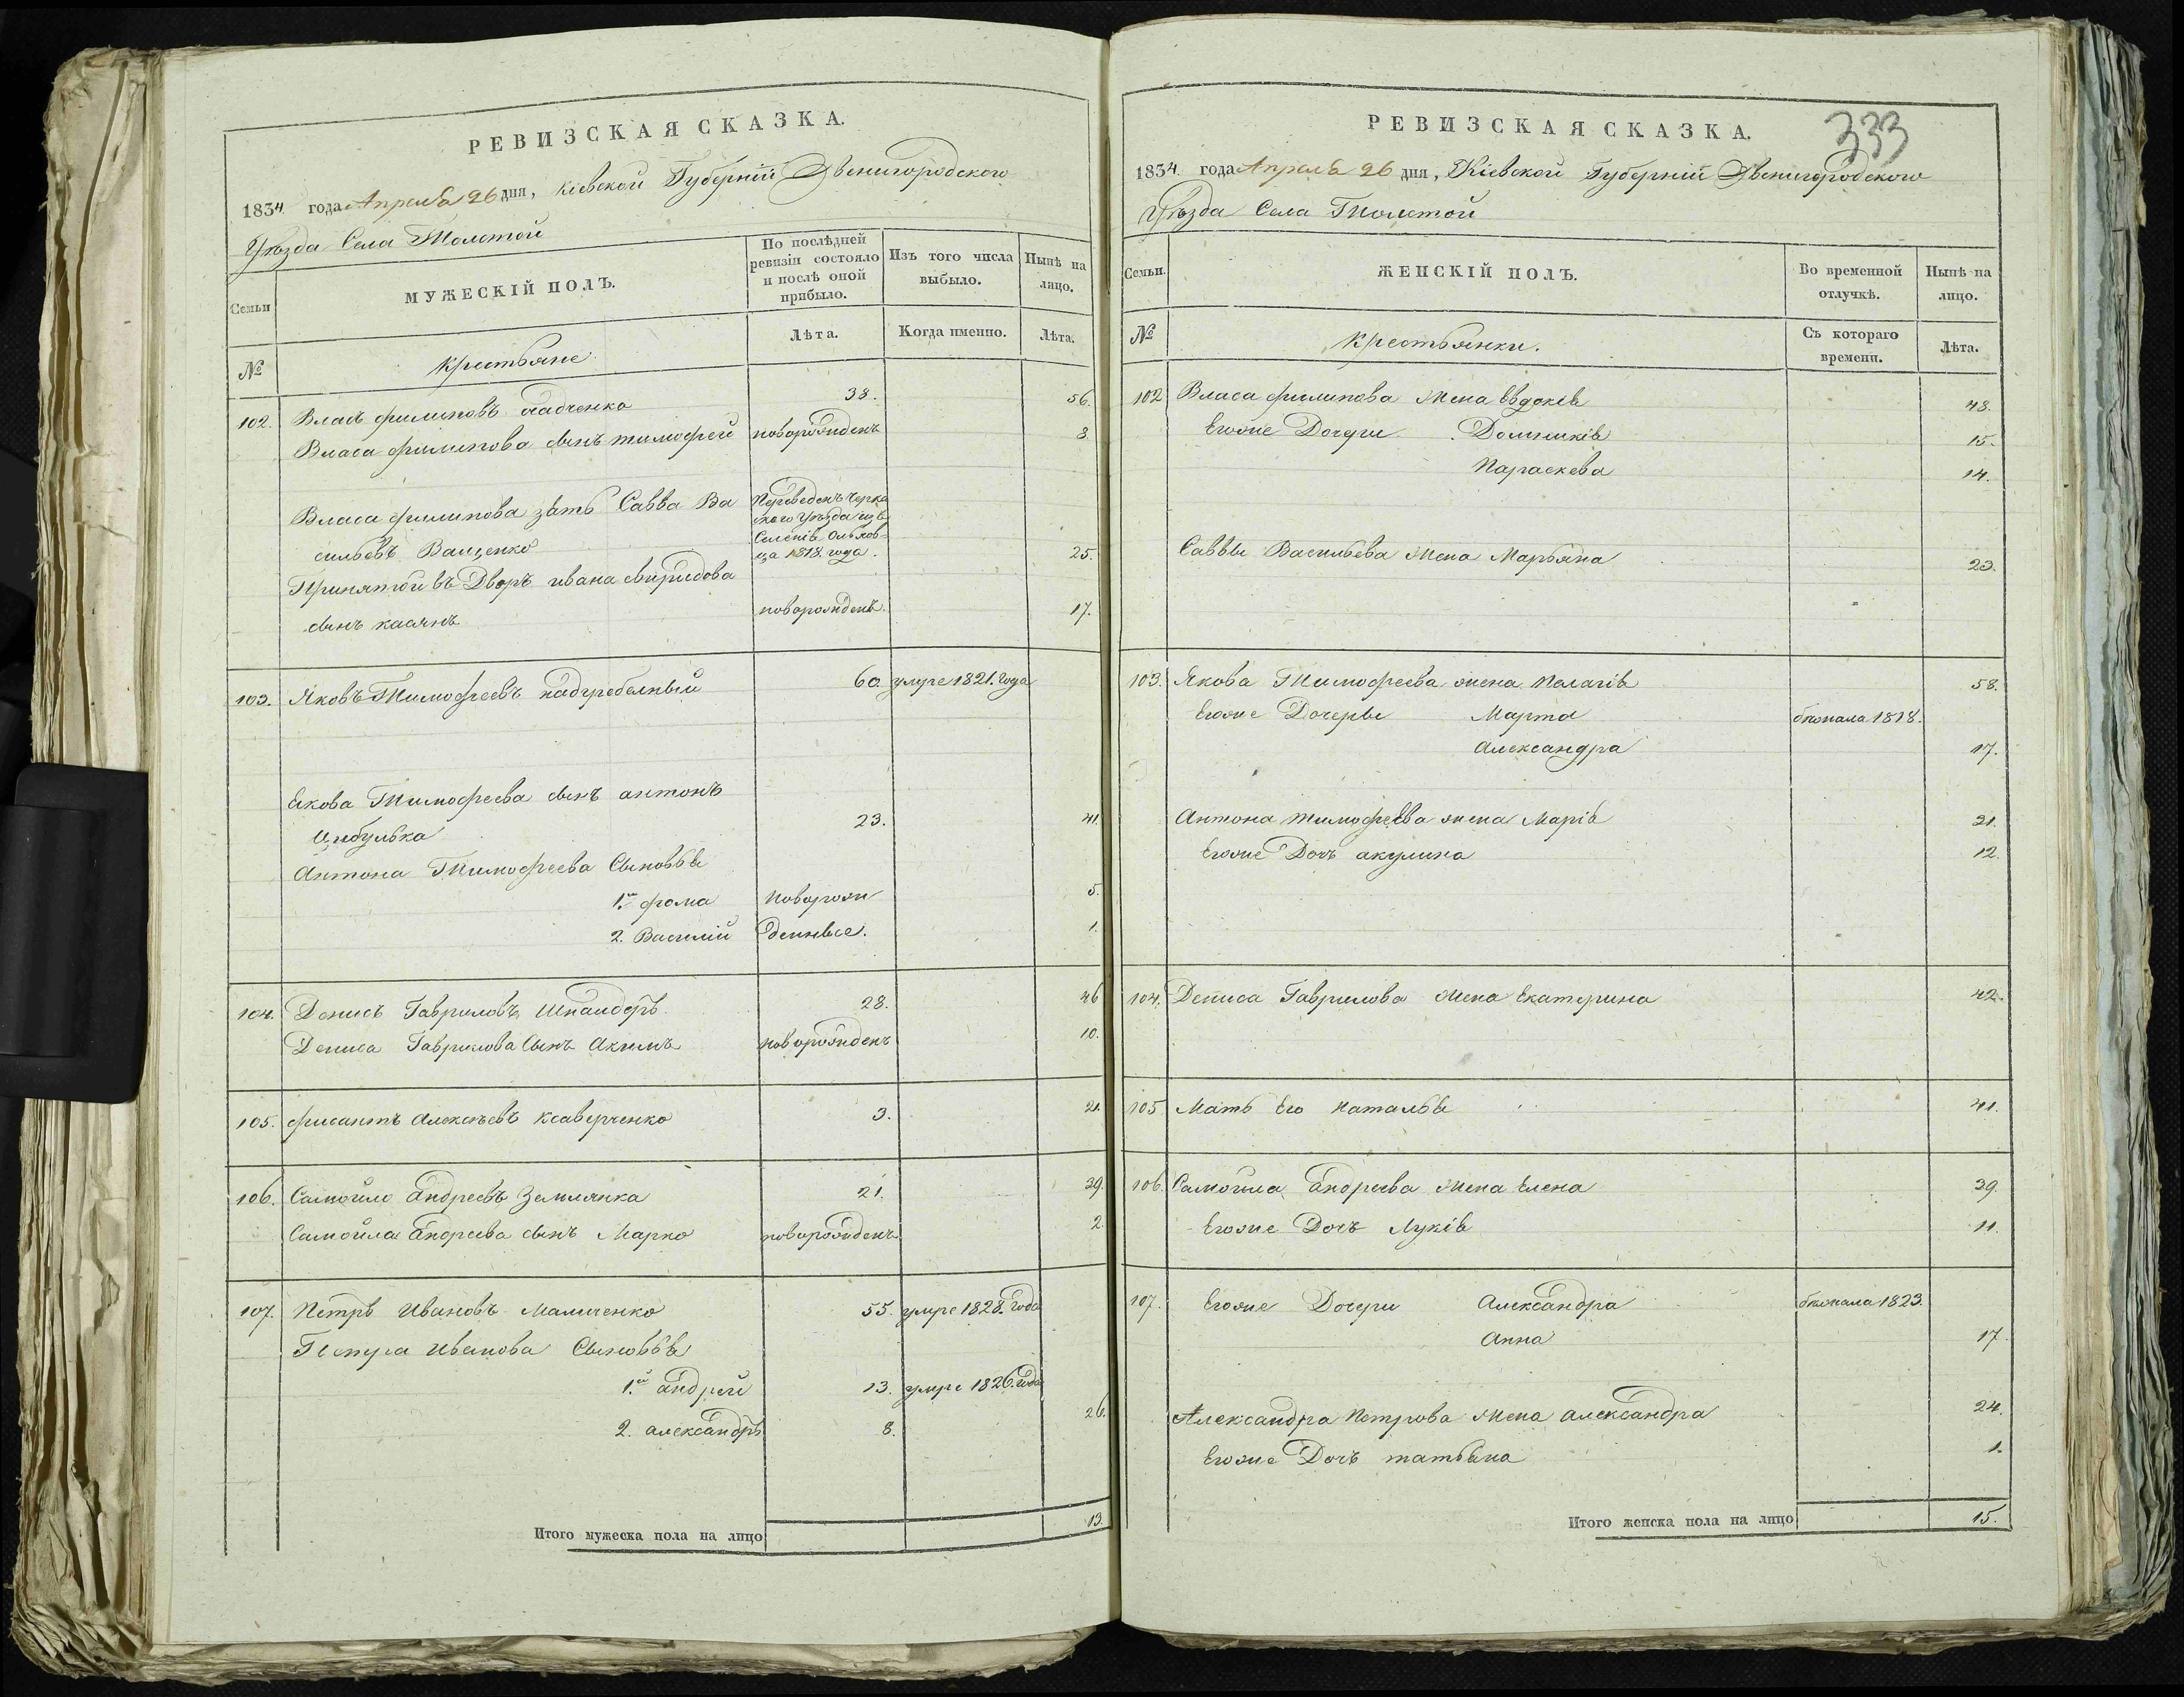 РЕВИЗСКАЯ СКАЗКА.
1834 года Апреля 26 дня, Кіевской Губерніи Звенигородского
Уѣзда Села Толстой
Семьи
МУЖЕСКІЙ ПОЛЪ.
По послѣдней ревизіи состояло и послѣ оной прибыло.
Изъ того числа выбыло.
Нынѣ на лицо.
№
Крестьяне
Лѣта.
Когда именно.
Лѣта.
102. Власъ филиповъ 38. 56.
Власа филипова сынъ тимофей новорожденъ 8
Власа филипова зять Савва Ва
сильевъ Ващенко 25.
Переведенъ Черка
ского Уѣзда изъ
Селенія Ольхов-
ца 1818 года.
Принятой въ Дворъ ивана свиридова
сынъ касянъ новорожденъ. 17.
103. Яковъ Тимофеевъ надгребелный 60. умре 1821. года
Якова Тимофеева сынъ антонъ
Цыбулька 23. 41.
Антона Тимофеева Сыновья
1.й фома новорож 5.
2. Василий денные. 1.
104. Денисъ Гавриловъ 28. 46
Дениса Гаврилова Сынъ Акимъ новорожденъ 10.
105. фисантъ алексѣевъ ксаверченко 3. 21.
106. Самойло андреевъ Землянка 21. 39.
Самойла андреева сынъ Марко новорожденъ 2.
107. Петръ Ивановъ Маличенко 55. умре 1828. года
Петра Иванова Сыновья
1.й андрей 13. умре 1826. года
2. александръ 8. 26.
Итого мужеска пола на лицо 13.
РЕВИЗСКАЯ СКАЗКА. 333
1834 года Апреля 26 дня, Кіевской Губерніи Звенигородского
Уѣзда Села Толстой
Семьи.
ЖЕНСКІЙ ПОЛЪ.
Во временной отлучкѣ.
Нынѣ на лицо.
№
Крестьянки.
Съ котораго времени.
Лѣта.
102 Власа филипова жена Евдокія 48.
Егоже Дочери Домникія 15.
Параскева 14.
Саввы Васильева жена Марьяна 23.
103. Якова Тимофеева жена Пелагія 58.
Егоже Дочеры Марта 1818.
Александра 17.
Антона тимофеева жена Марія 31.
Егоже Дочь акулина 12.
104. Дениса Гаврилова жена Екатерина 42.
105 Мать Его Наталья 41.
106. Самойла андреева жена Елена 39.
Егоже Дочъ Лукія 11.
107. Егоже Дочери Александра 1823.
Анна 17.
Александра Петрова жена александра 24.
Егоже Дочъ татьяна 1.
Итого женска пола на лицо 15.